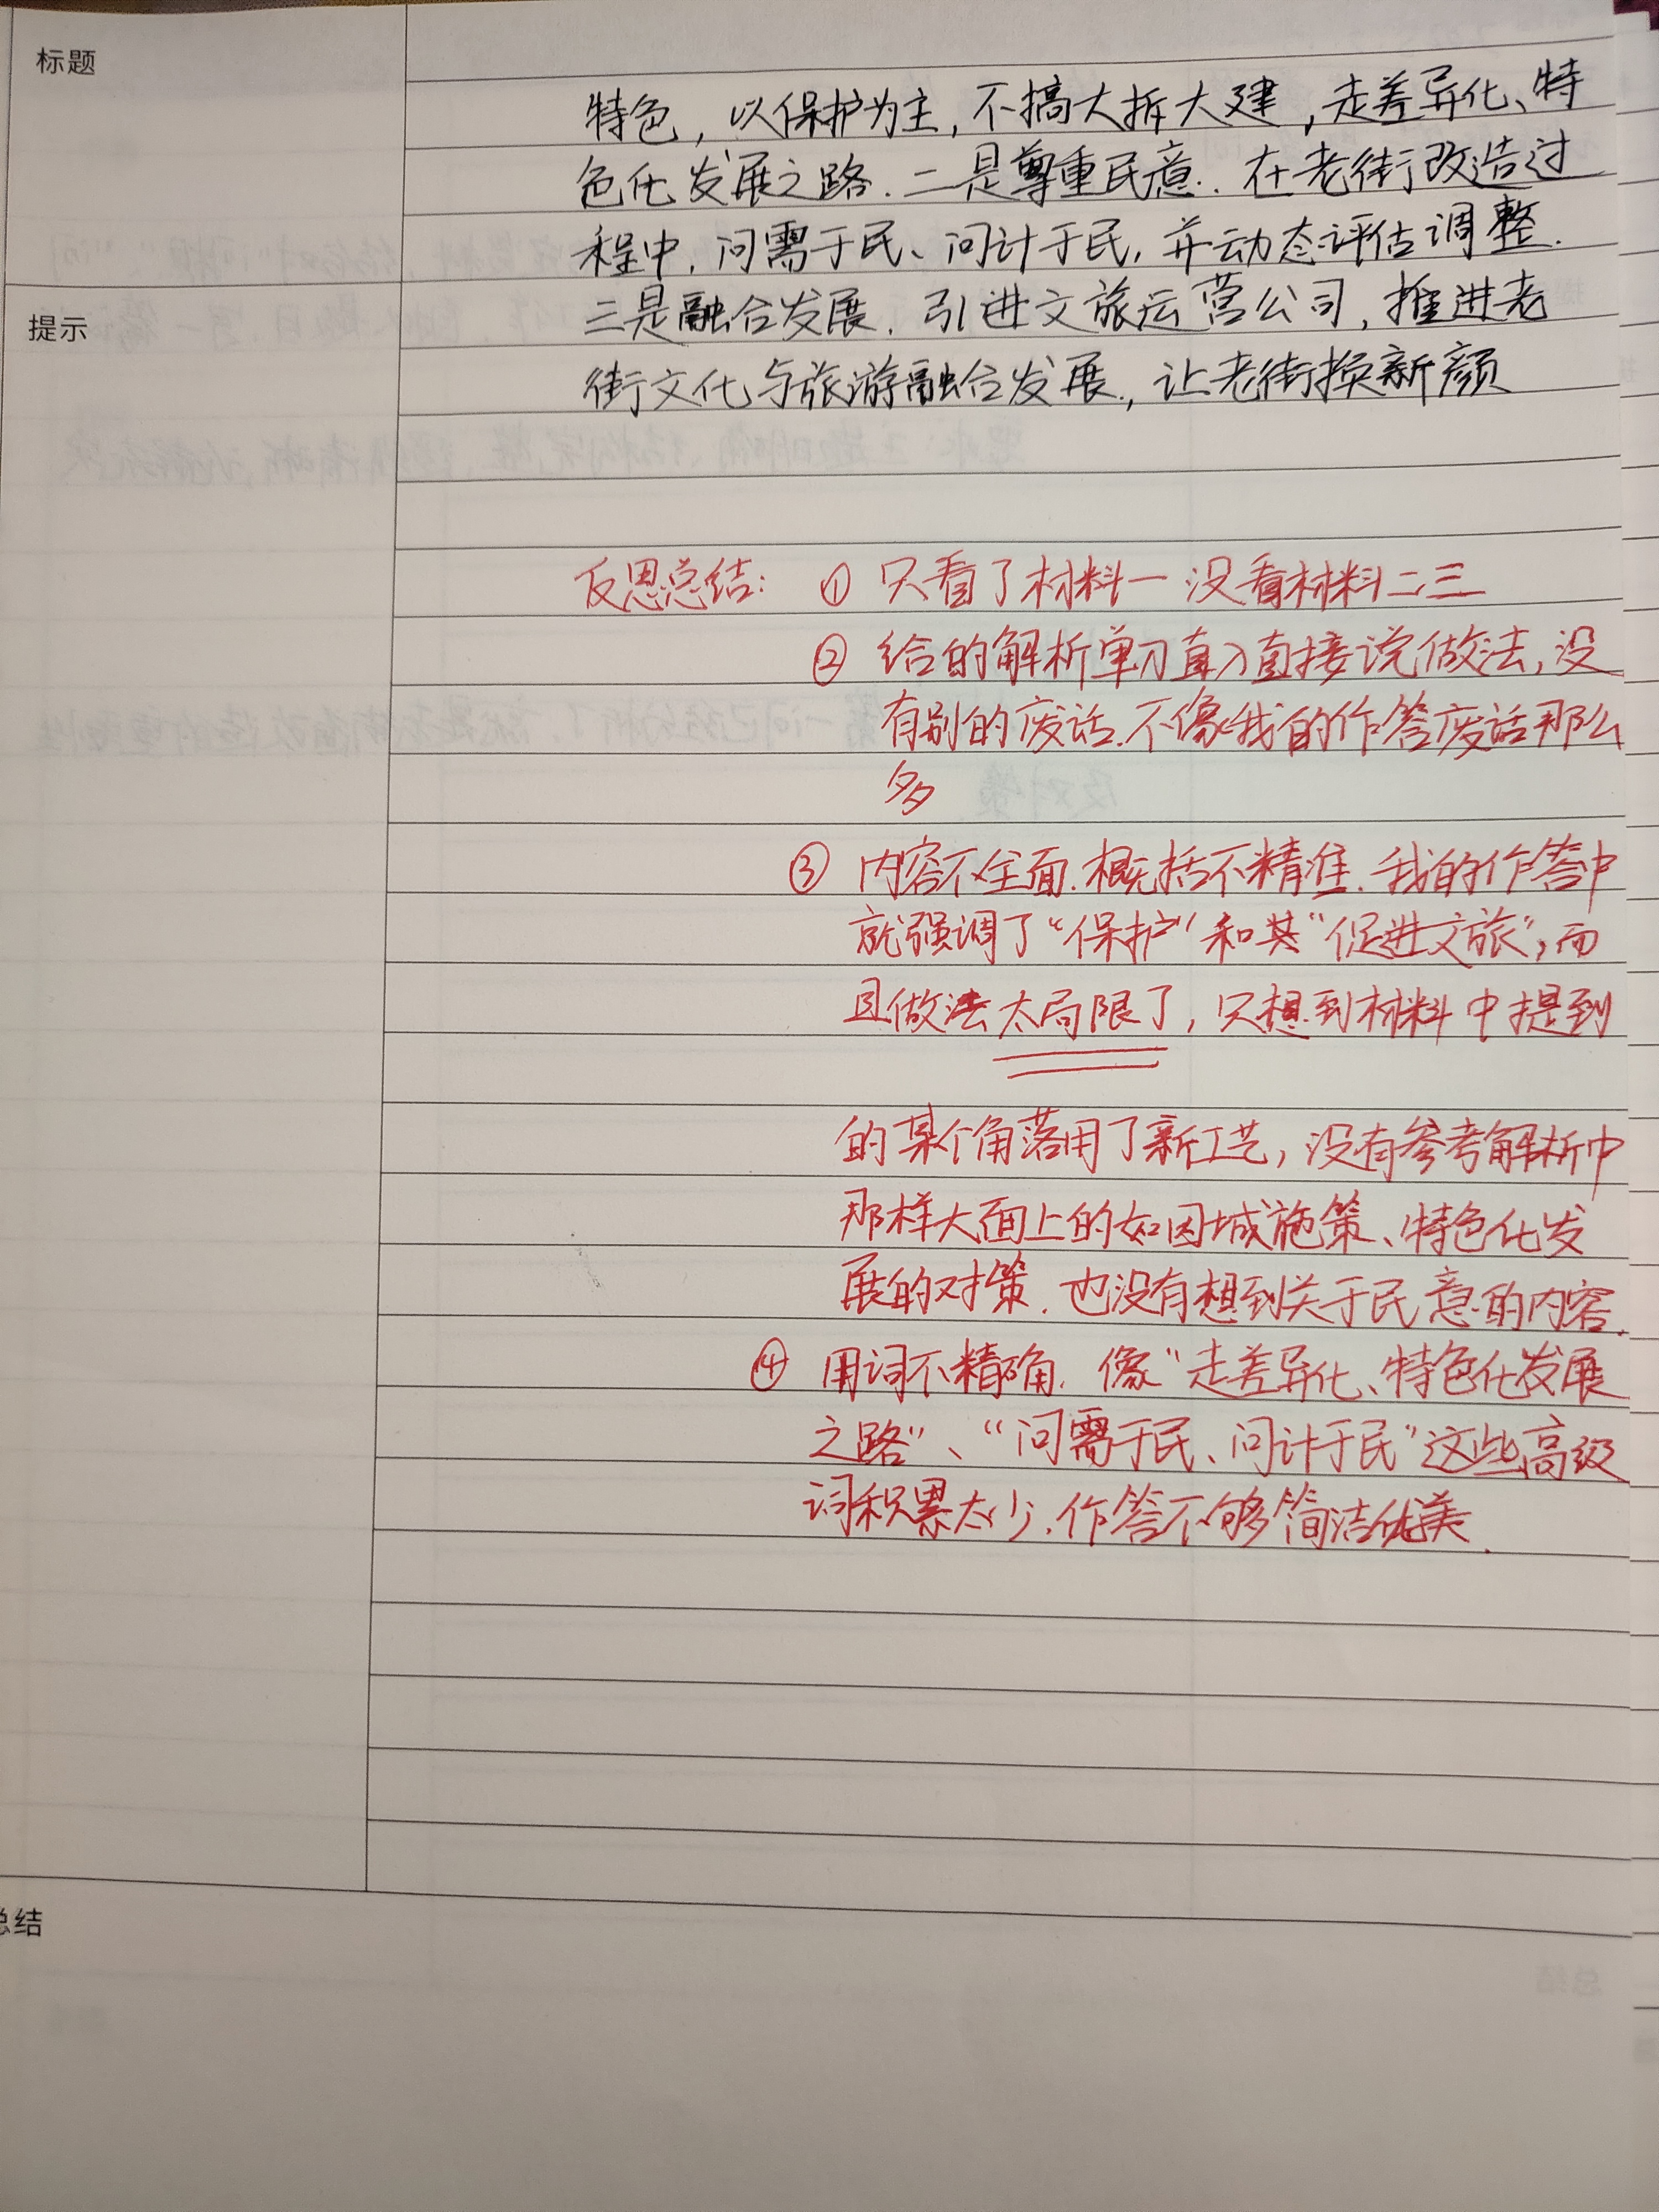 标题
特色，以保护为主，不搞大拆大建，走差异化、特
色化发展之路．二是尊重民意．在老街改造过
程中，问需于民、问计于民，并动态评估调整．
提示
三是融合发展．引进文旅运营公司，推进老
街文化与旅游融合发展，让老街换新颜
反思总结：① 只看了材料一 没看材料二三
② 给的解析单刀直入直接说做法，没
有别的废话．不像我的作答废话那么
多
③ 内容不全面．概括不精准．我的作答中
就强调了“保护”和其“促进文旅”，而
且做法太局限了，只想到材料中提到
的某个角落用了新工艺，没有参考解析中
那样大面上的如因城施策、特色化发
展的对策．也没有想到关于民意的内容．
④ 用词不精确．像“走差异化、特色化发展
之路”、“问需于民、问计于民”这些高级
词积累太少．作答不够简洁优美．
总结